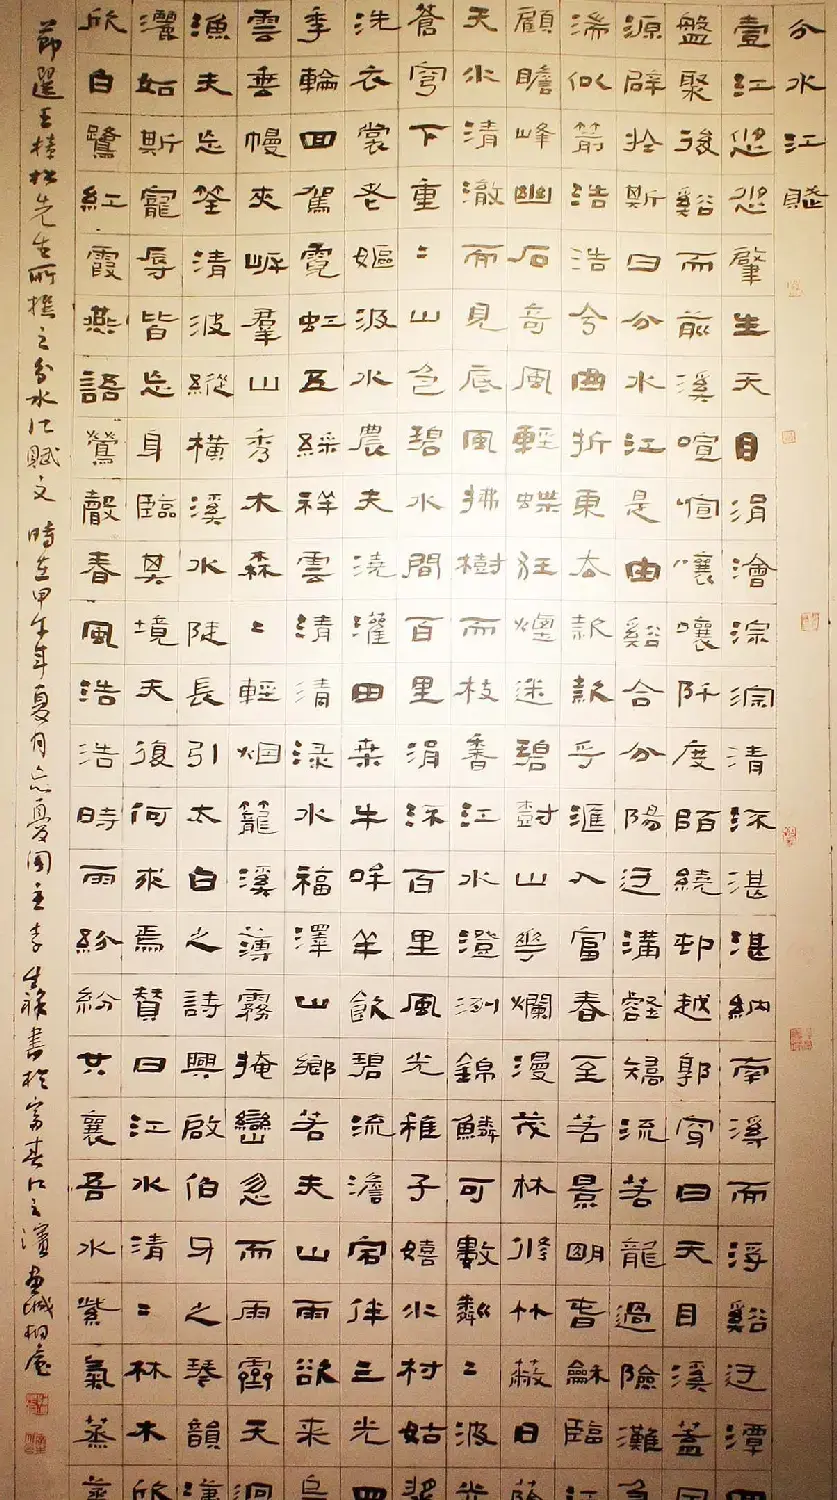 分水江賦
壹江悠悠肇生天目涓澮淙淙清流湛湛納南溪而浮谿迂潭四
盤聚後谿而前溪喧喧嚷嚷阡度陌繞邨越郭穿曰天目溪蓋因
源辟於斯曰分水江是由谿合分陽迂溝壑矯流若龍過險灘急
湍似箭浩浩兮曲折東去款款乎滙入富春至若景明春龢臨江
顧瞻峰幽石奇風輕蝶狂煙迷碧樹山花爛漫茂林修竹蔽日蔭
天水清澈而見底風拂樹而枝香江水澄冽錦鱗可數粼〻波光
蒼穹下重〻山色碧水間百里涓流百里風光稚子嬉水村姑
洗衣裳老嫗汲水農夫澆灌田桑牛哞羊飲碧流澹宕伴三光四
季輪回駕霓虹五綵祥雲清清渌水福澤山鄉若夫山雨欲来烏
雲垂幔夾岸羣山秀木森〻輕烟籠溪薄霧掩巒忽而雨霽天泂
漁夫忘筌清波縱橫溪水陡長引太白之詩興啟伯牙之琴韻瀟
灑如斯寵辱皆忘身臨其境夫復何求焉贊曰江水清〻林木欣
欣白鷺紅霞燕語鶯聲春風浩浩時雨紛紛共襄吾水紫氣蒸蒸
節選王樟松先生所撰之分水江賦文 時在甲午年夏月忘憂園主李生祿書於富春江之濱